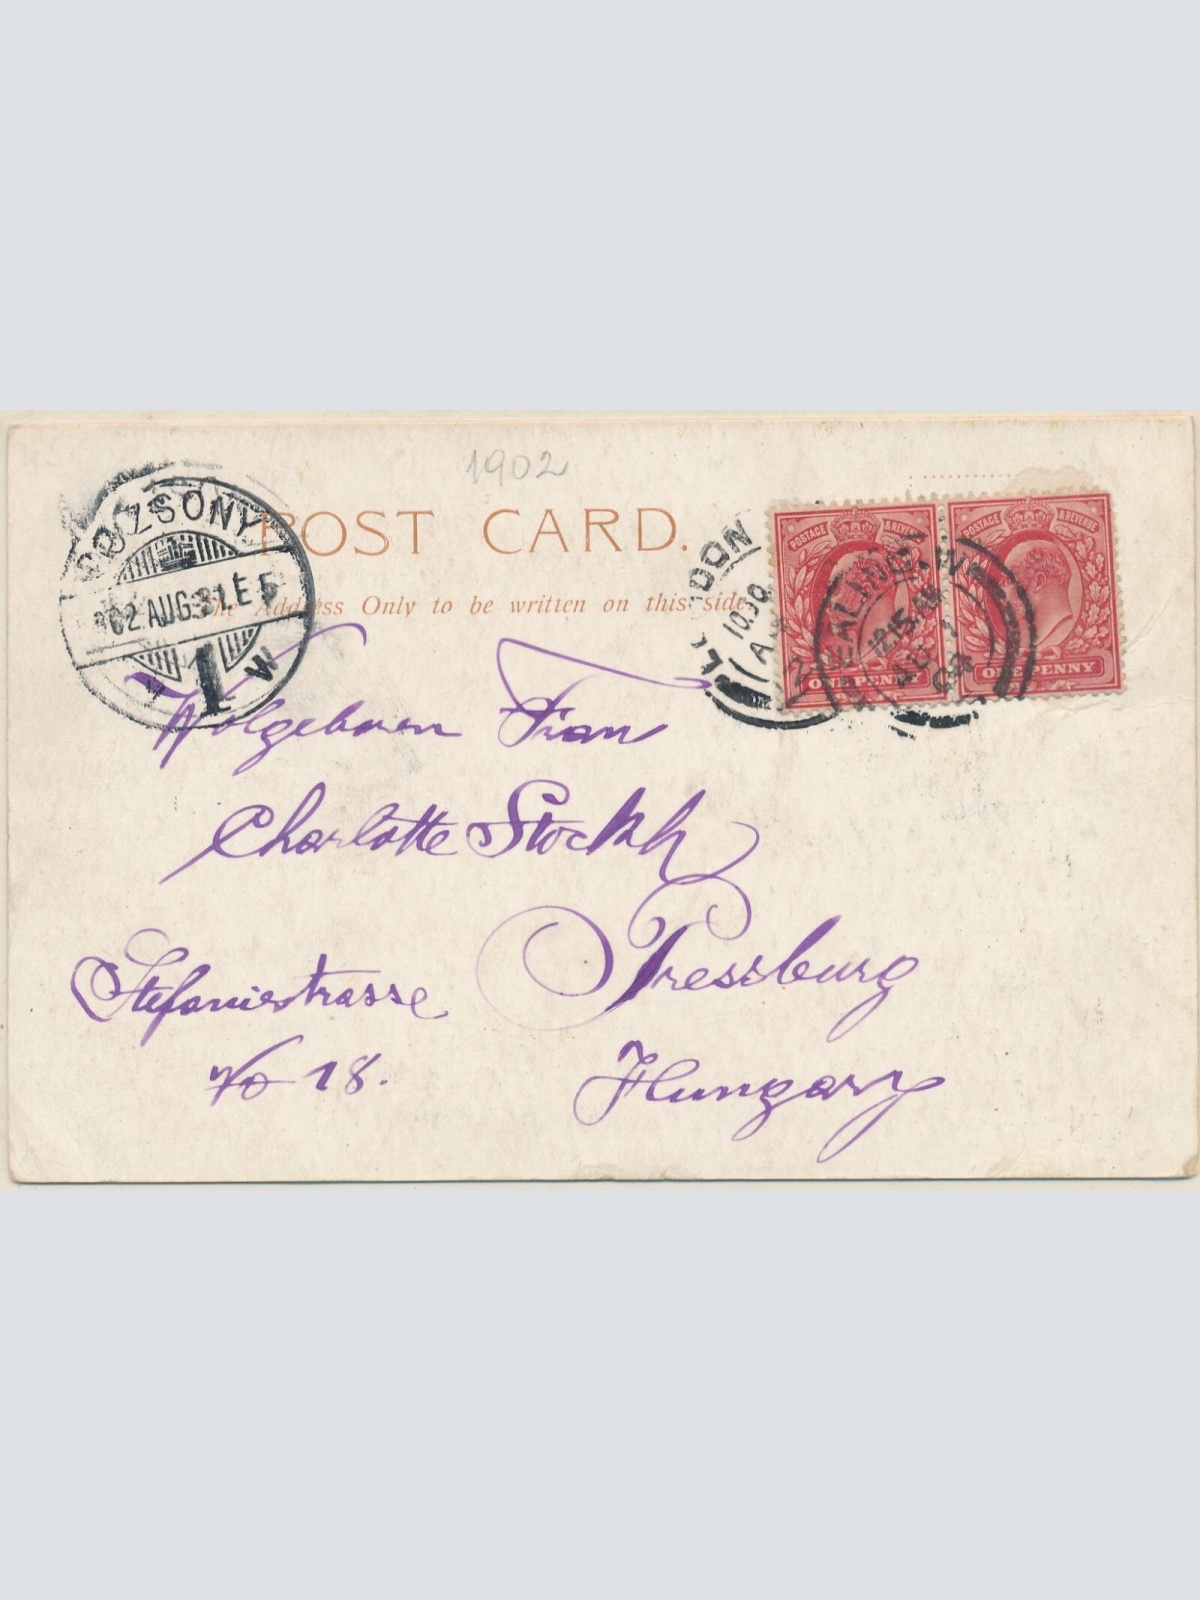 1902
POZSONY
POST CARD.
902 AUG 31 E 5
The Address Only to be written on this side
1
LONDON
10.30
EALING.W
12.15.PM
02
POSTAGE & REVENUE
ONE PENNY
POSTAGE & REVENUE
ONE PENNY
Wolgeboren Frau
Charlotte Stockh
Pressburg
Stefaniestrasse
No 18.
Hungary